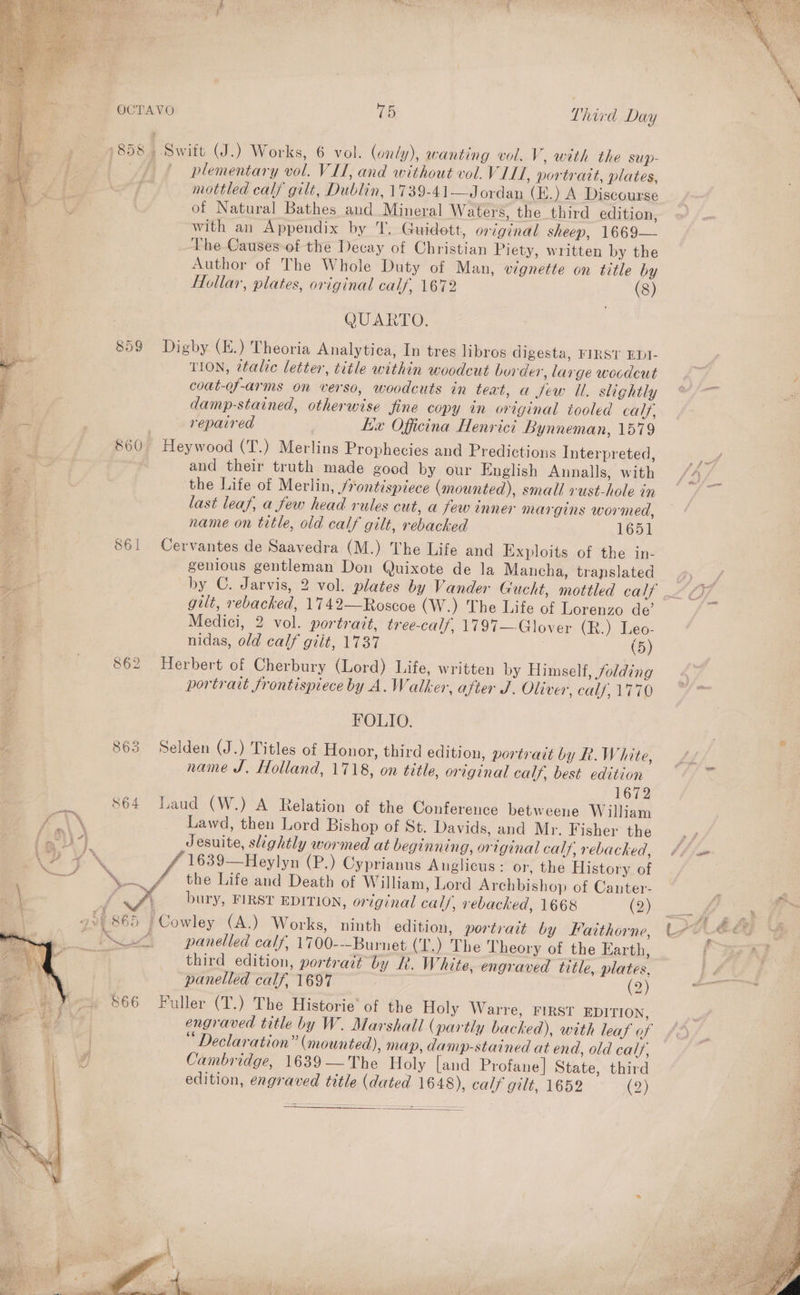 OCTAVO 75 Third Day
858 Swift (J.) Works, 6 vol. (only), wanting vol. V, with the sup-
plementary vol. VII, and without vol. VIII, portrait, plates,
mottled calf gilt, Dublin, 1739-41—Jordan (E.) A Discourse
of Natural Bathes and Mineral Waters, the third edition,
with an Appendix by T. Guidott, original sheep, 1669—
The Causes of the Decay of Christian Piety, written by the
Author of The Whole Duty of Man, vignette on title by
Hollar, plates, original calf, 1672 (8)
QUARTO.
859 Digby (E.) Theoria Analytica, In tres libros digesta, FIRST EDI-
TION, italic letter, title within woodcut border, large woodcut
coat-of-arms on verso, woodcuts in text, a few ll. slightly
damp-stained, otherwise fine copy in original tooled calf,
repaired Ex Officina Henrici Bynneman, 1579
860 Heywood (T.) Merlins Prophecies and Predictions Interpreted,
and their truth made good by our English Annalls, with
the Life of Merlin, frontispiece (mounted), small rust-hole in
last leaf, a few head rules cut, a few inner margins wormed,
name on title, old calf gilt, rebacked 1651
861 Cervantes de Saavedra (M.) The Life and Exploits of the in-
genious gentleman Don Quixote de la Mancha, translated
by C. Jarvis, 2 vol. plates by Vander Gucht, mottled calf
gilt, rebacked, 1742—Roscoe (W.) The Life of Lorenzo de'
Medici, 2 vol. portrait, tree-calf, 1797—Glover (R.) Leo-
nidas, old calf gilt, 1737 (5)
862 Herbert of Cherbury (Lord) Life, written by Himself, folding
portrait frontispiece by A. Walker, after J. Oliver, calf, 1770
FOLIO.
863 Selden (J.) Titles of Honor, third edition, portrait by R. White,
name J. Holland, 1718, on title, original calf, best edition
1672
864 Laud (W.) A Relation of the Conference betweene William
Lawd, then Lord Bishop of St. Davids, and Mr. Fisher the
Jesuite, slightly wormed at beginning, original calf, rebacked,
1639—Heylyn (P.) Cyprianus Anglicus: or, the History of
the Life and Death of William, Lord Archbishop of Canter-
bury, FIRST EDITION, original calf, rebacked, 1668 (2)
865 Cowley (A.) Works, ninth edition, portrait by Faithorne,
panelled calf, 1700--Burnet (T.) The Theory of the Earth,
third edition, portrait by R. White, engraved title, plates,
panelled calf, 1697 (2)
866 Fuller (T.) The Historie of the Holy Warre, FIRST EDITION,
engraved title by W. Marshall (partly backed), with leaf of
"Declaration" (mounted), map, damp-stained at end, old calf,
Cambridge, 1639—The Holy [and Profane] State, third
edition, engraved title (dated 1648), calf gilt, 1652 (2)